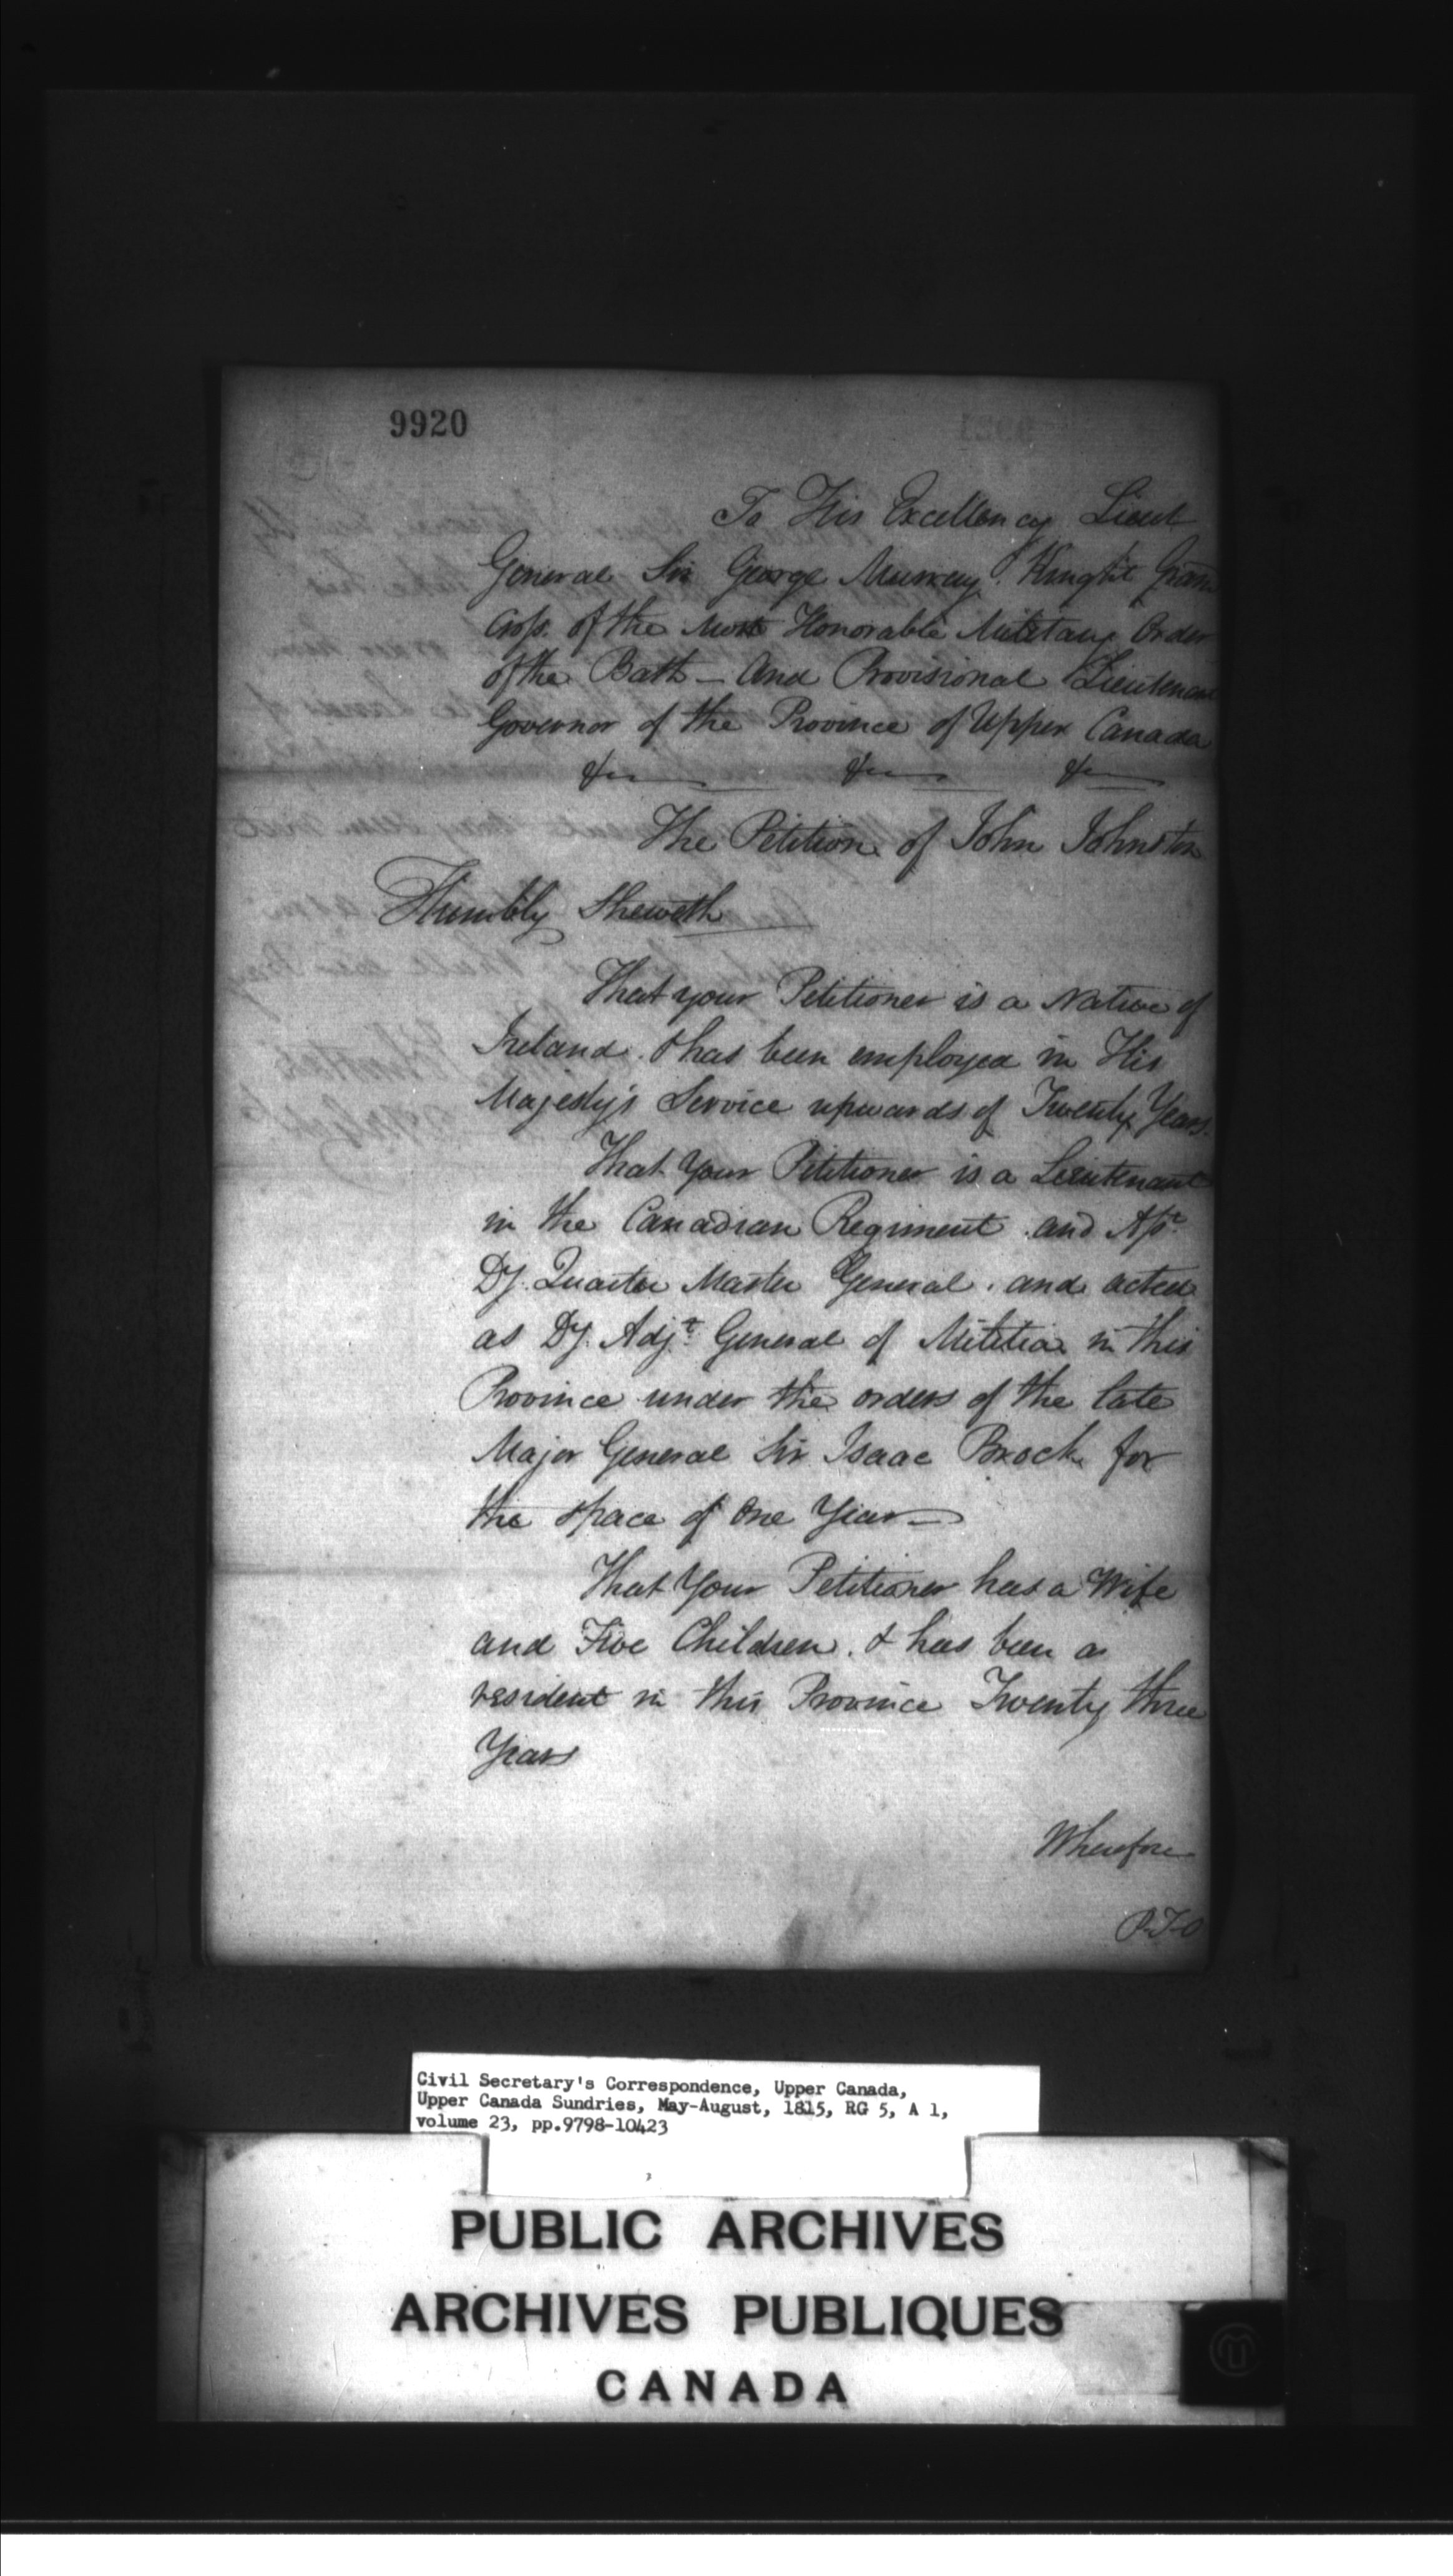 9920
To His Excellency Lieut
General Sir George Murray. Knight Grand
Cross. of the Most Honorable Military Order
of the Bath — And Provisional Lieutenant
Governor of the Province of Upper Canada
&c &c &c
The Petition of John Johnston
Humbly Sheweth
That your Petitioner is a Native of
Ireland. & has been employed in His
Majesty's Service upwards of Twenty Years.
That Your Petitioner is a Lieutenant
in the Canadian Regiment. and Asst.
Dy. Quarter Master General. and acted
as Dy. Adjt. General of Militia in this
Province under the orders of the late
Major General Sir Isaac Brock for
the space of One Year —
That Your Petitioner has a Wife
and Five Children. & has been a
resident in this Province Twenty three
Years
Wherefore
P.T.O
Civil Secretary's Correspondence, Upper Canada,
Upper Canada Sundries, May-August, 1815, RG 5, A 1,
volume 23, pp.9798-10423
PUBLIC ARCHIVES
ARCHIVES PUBLIQUES
CANADA